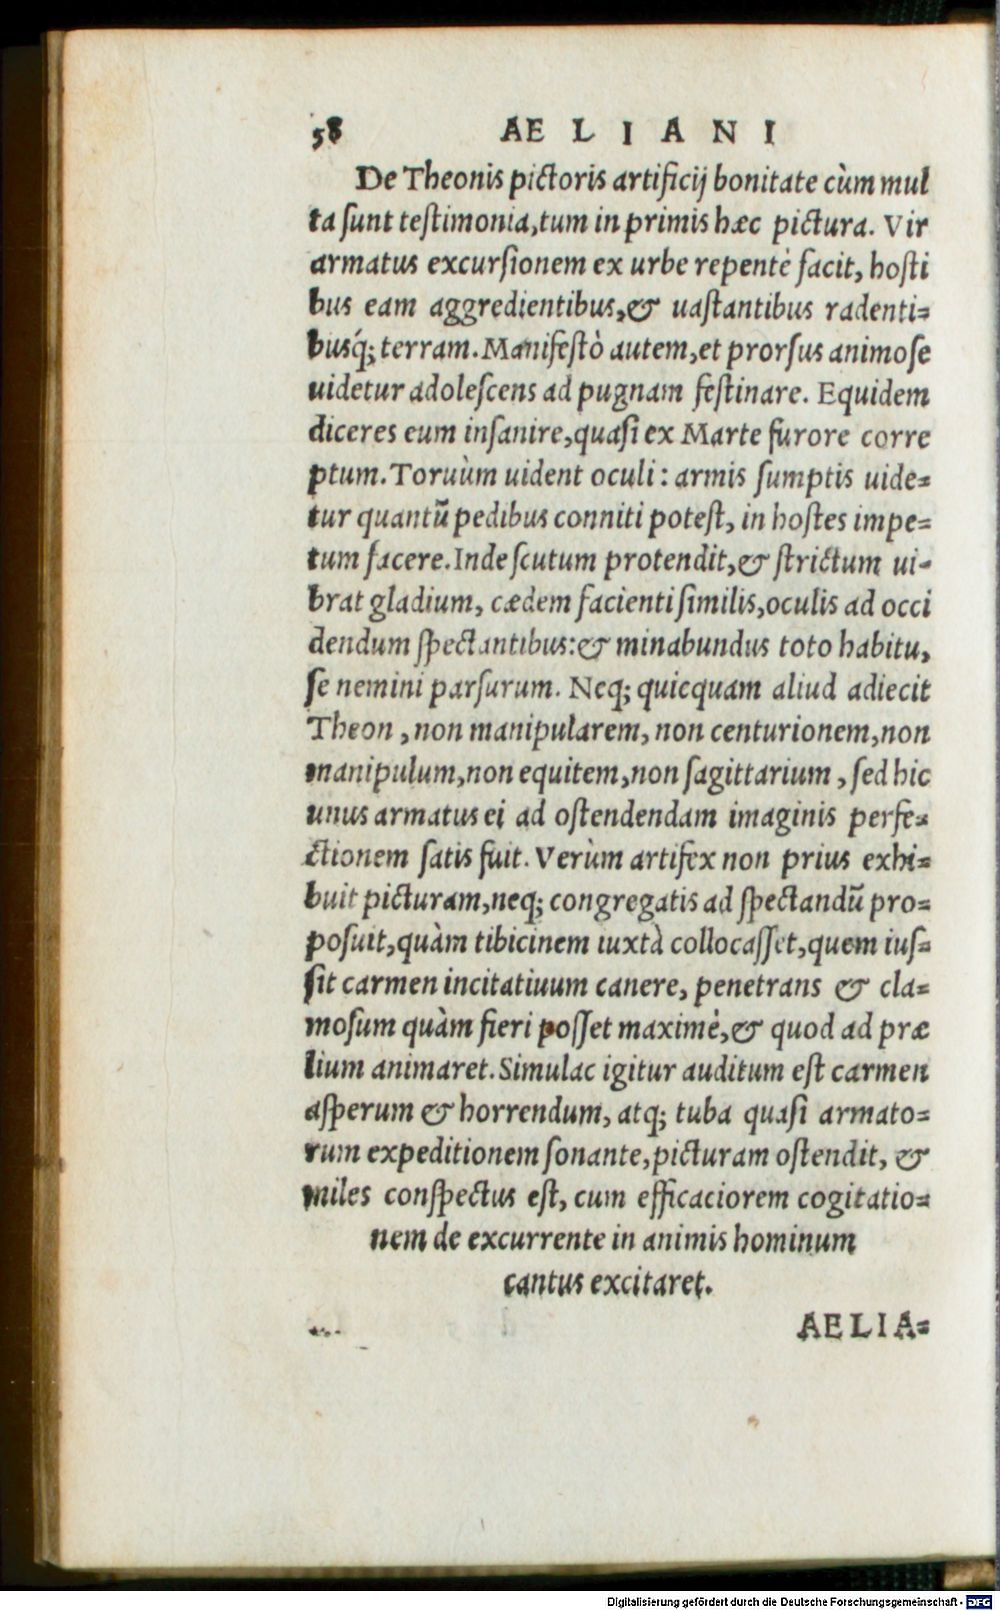 58 AELIANI
De Theonis pictoris artificij bonitate cùm mul
ta ſunt teſtimonia,tum in primis hæc pictura. Vir
armatus excurſionem ex urbe repentè facit, hoſti
bus eam aggredientibus,& uaſtantibus radenti=
busq́; terram. Manifeſtò autem,et prorſus animoſe
uidetur adoleſcens ad pugnam feſtinare. Equidem
diceres eum inſanire,quaſi ex Marte furore corre
ptum. Toruùm uident oculi: armis ſumptis uide=
tur quantũ pedibus conniti poteſt, in hoſtes impe=
tum facere. Inde ſcutum protendit,& ſtrictum ui-
brat gladium, cædem facienti ſimilis,oculis ad occi
dendum ſpectantibus:& minabundus toto habitu,
ſe nemini parſurum. Neq; quicquam aliud adiecit
Theon, non manipularem, non centurionem,non
manipulum,non equitem,non ſagittarium, ſed hic
unus armatus ei ad oſtendendam imaginis perfe=
ctionem ſatis fuit. Verùm artifex non prius exhi=
buit picturam,neq; congregatis ad ſpectandũ pro=
poſuit,quàm tibicinem iuxtà collocaſſet,quem iuſ=
ſit carmen incitatiuum canere, penetrans & cla=
moſum quàm fieri poſſet maximè,& quod ad præ
lium animaret. Simulac igitur auditum eſt carmen
aſperum & horrendum, atq; tuba quaſi armato=
rum expeditionem ſonante,picturam oſtendit, &
miles conſpectus eſt, cum efficaciorem cogitatio=
nem de excurrente in animis hominum
cantus excitaret.
AELIA=
Digitalisierung gefördert durch die Deutsche Forschungsgemeinschaft - DFG